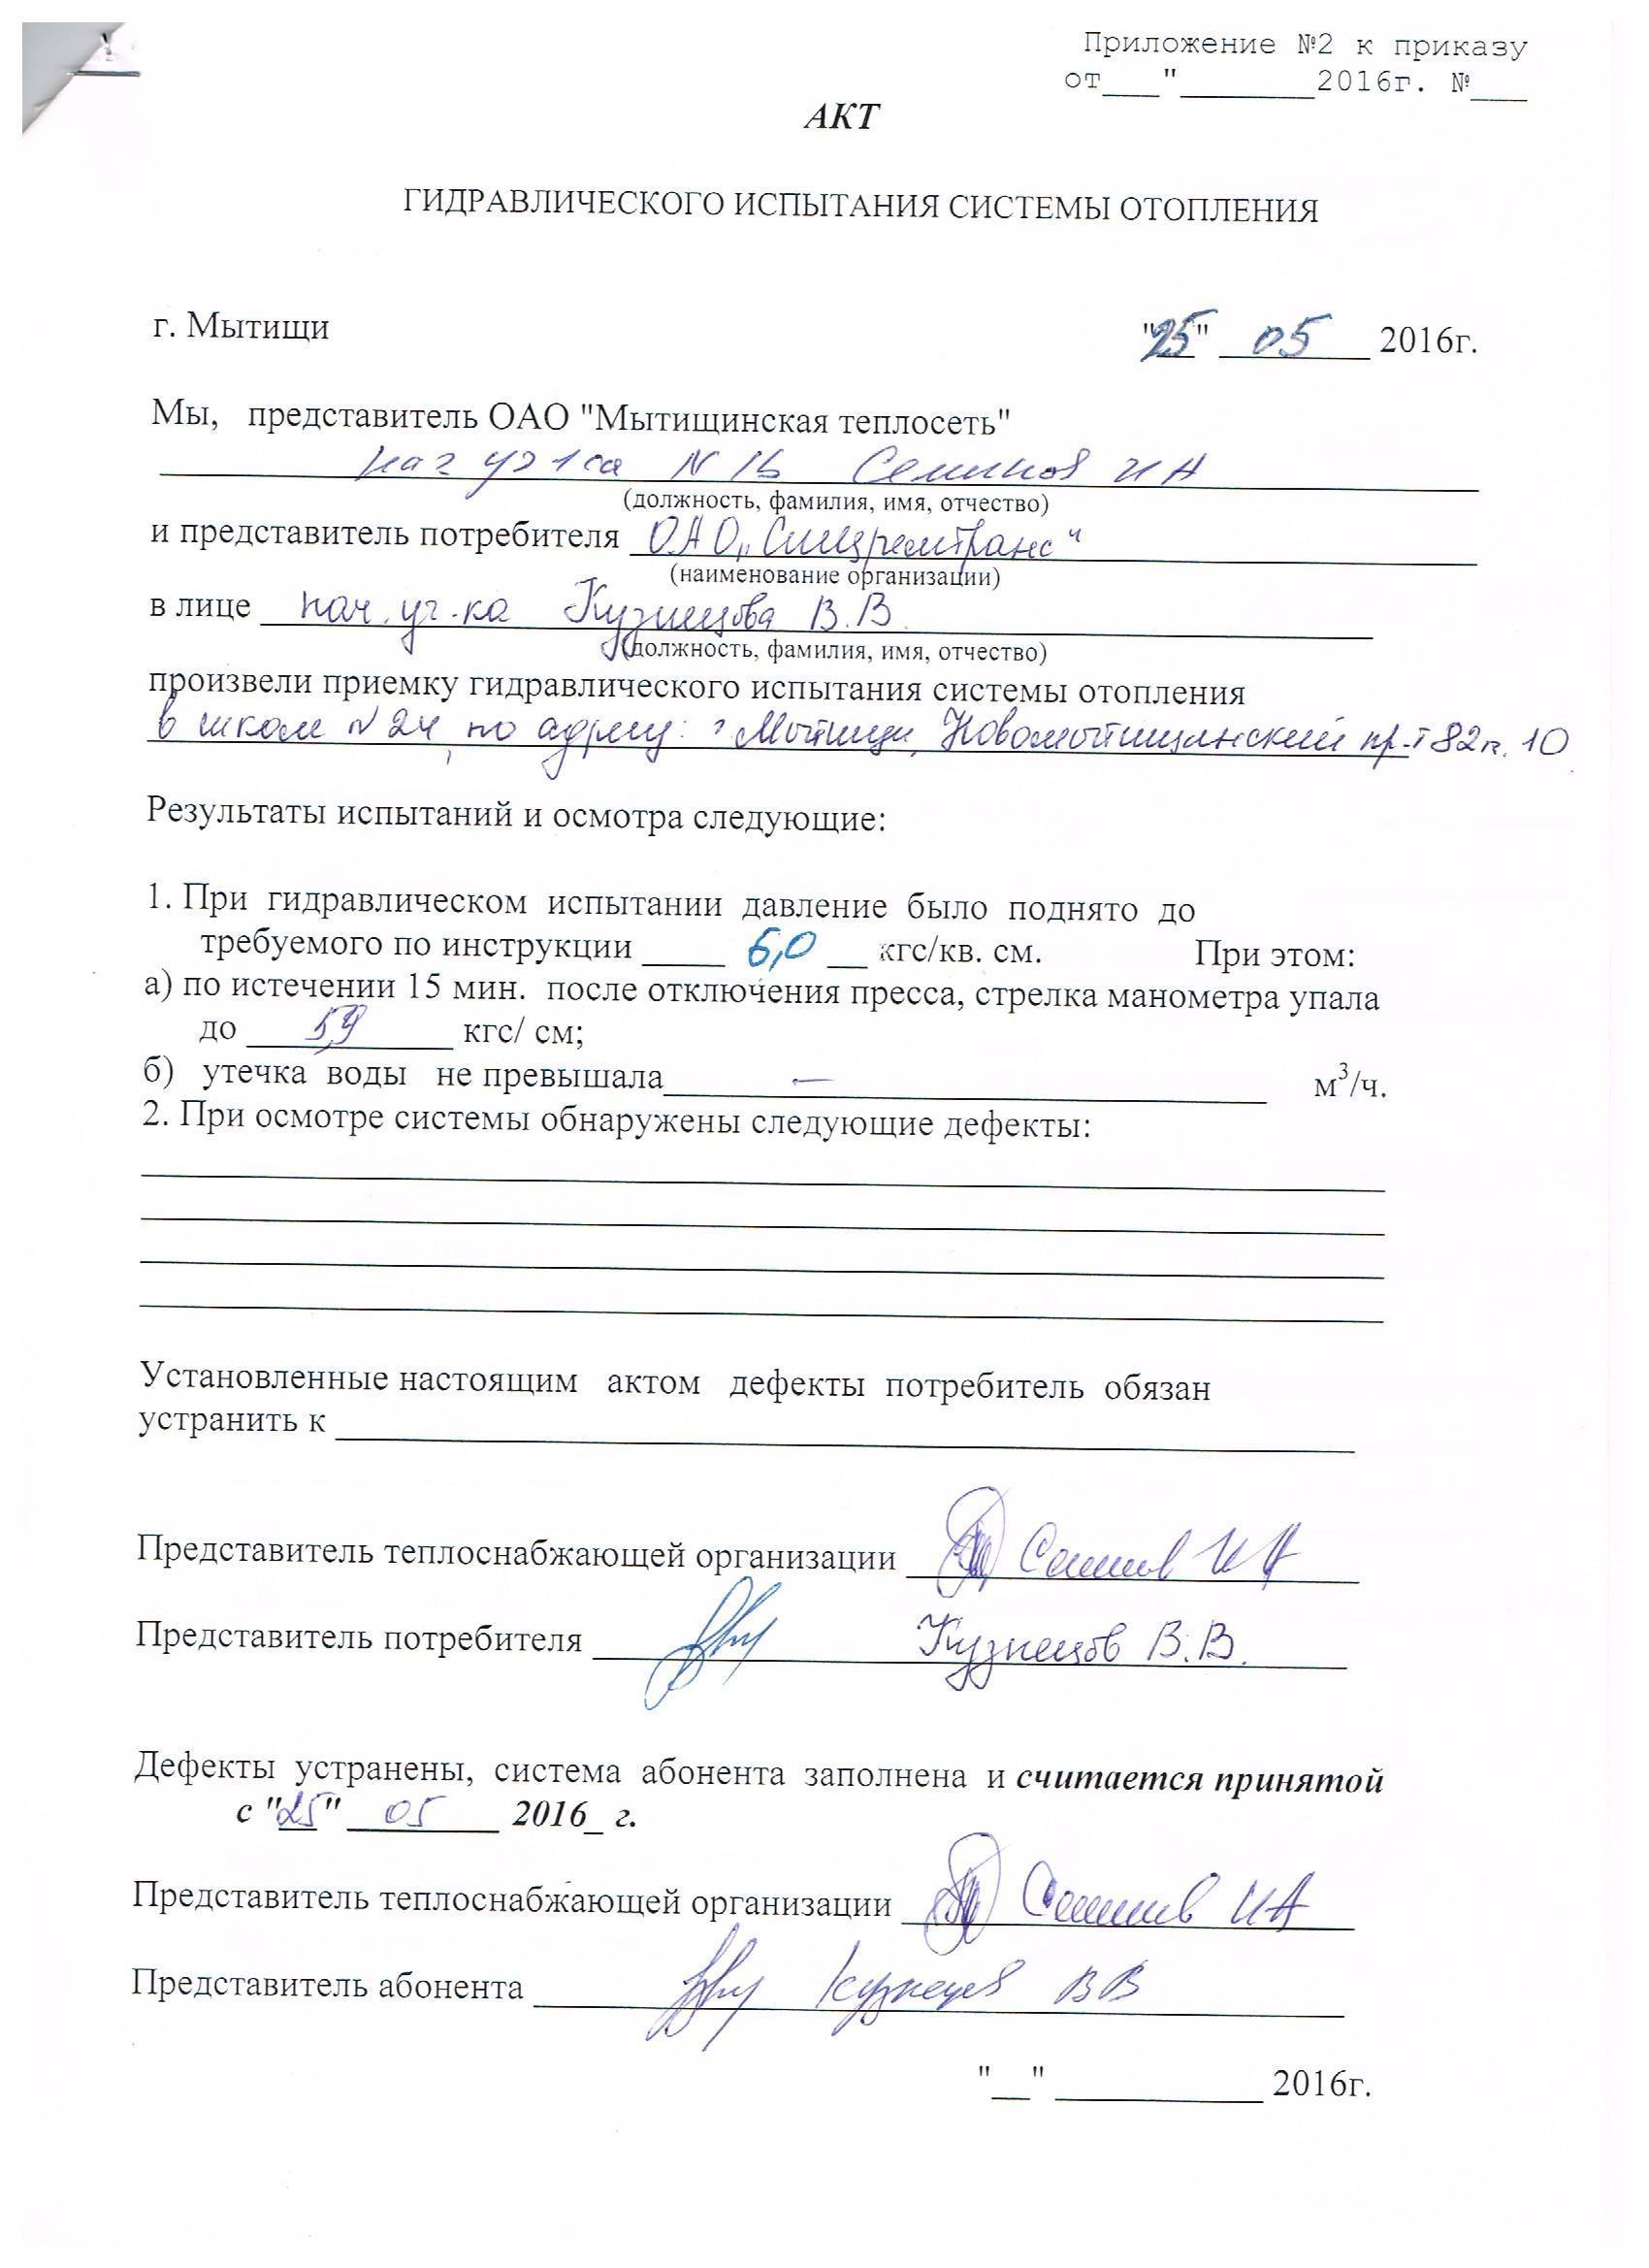 Приложение №2 к приказу
от___"_______2016г. №___
АКТ
ГИДРАВЛИЧЕСКОГО ИСПЫТАНИЯ СИСТЕМЫ ОТОПЛЕНИЯ
г. Мытищи "25" 05 2016г.
Мы, представитель ОАО "Мытищинская теплосеть"
нач уч-ка N ИА
(должность, фамилия, имя, отчество)
и представитель потребителя ОАО „Спецремтранс“
(наименование организации)
в лице нач. уч-ка Кузнецова В.В.
(должность, фамилия, имя, отчество)
произвели приемку гидравлического испытания системы отопления
в школе №24, по адресу: г. Мытищи, Новомытищинский пр-т 82 10
Результаты испытаний и осмотра следующие:
1. При гидравлическом испытании давление было поднято до
требуемого по инструкции _____ 6,0 __ кгс/кв. см. При этом:
а) по истечении 15 мин. после отключения пресса, стрелка манометра упала
до 5,9 кгс/ см;
б) утечка воды не превышала — м³/ч.
2. При осмотре системы обнаружены следующие дефекты:
Установленные настоящим актом дефекты потребитель обязан
устранить к
Представитель теплоснабжающей организации ИА
Представитель потребителя Кузнецов В.В.
Дефекты устранены, система абонента заполнена и считается принятой
с "25" 05 2016_ г.
Представитель теплоснабжающей организации ИА
Представитель абонента Кузнецов ВВ
"__" ___________ 2016г.